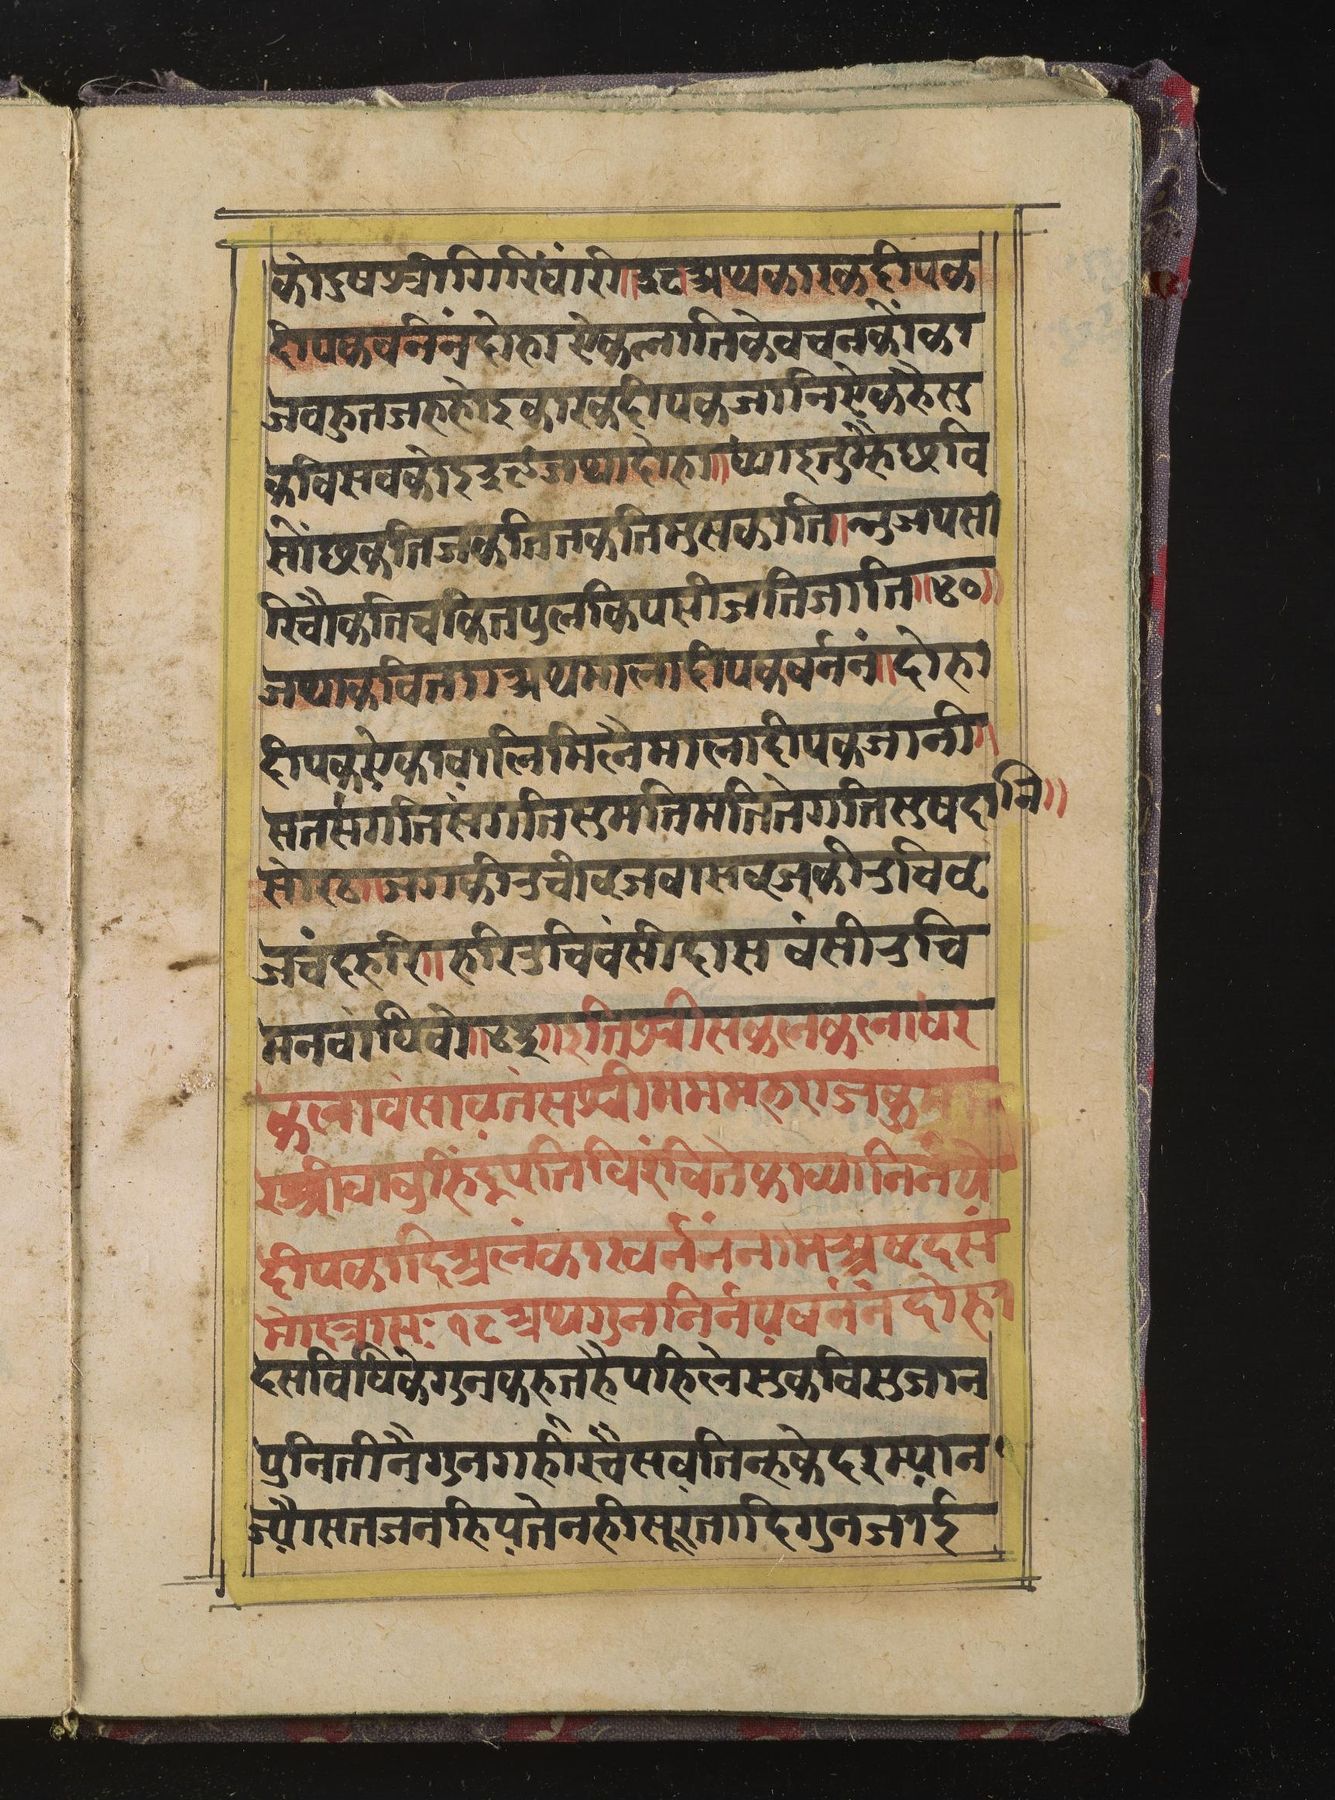 को दुष श्री गिरिधारी॥३८ अथ कारक दीपक
दीपक वर्ननं दोहा ऐक लाति के वचन कौं का
ज वहुत जह होइ कारक दीपक जानि ऐक है सु
कवि सव कोइ ३९ जथा दोहा॥ ध्याइ तुम्है छवि
सौं छकति जकति तकति मुसकाति॥ भुज पसा
रि चौकति चकित पुलकि पसीजति जाति॥४०॥
जथा कवित्त॥ अथ माला दीपक वर्ननं॥ दोहा
दीपक ऐकावालि मिलै माला दीपक जानी॥
सतसंगति संगति सुमति मति ते गति सुषदानि॥
सोरठा जग की रुची व्रजवास व्रज की रुचि व्र
जचंद हरि॥ हरि रुचि वंसी दास वंसी रुचि
मन वाधिवो॥४३॥ इति श्री सकल कलाधर
कलावंसावतंस श्री मम महाराज कुमा
र श्री वावु हिंदूपति विरंचिते काव्य निर्नये
दीपकादि अलंकार वर्ननं नाम अष्टदसं
मोल्लासः १८ अथ गुन निर्नय वर्ननं दोहा
दस विधि के गुन कहत है पहिले सुकवि सुजान
पुनि तीनै गुन गहौ रचै सव तिन्ह के दरम्यान
ज्यौ सतजन हिय ते नही सूरतादि गुन जाई